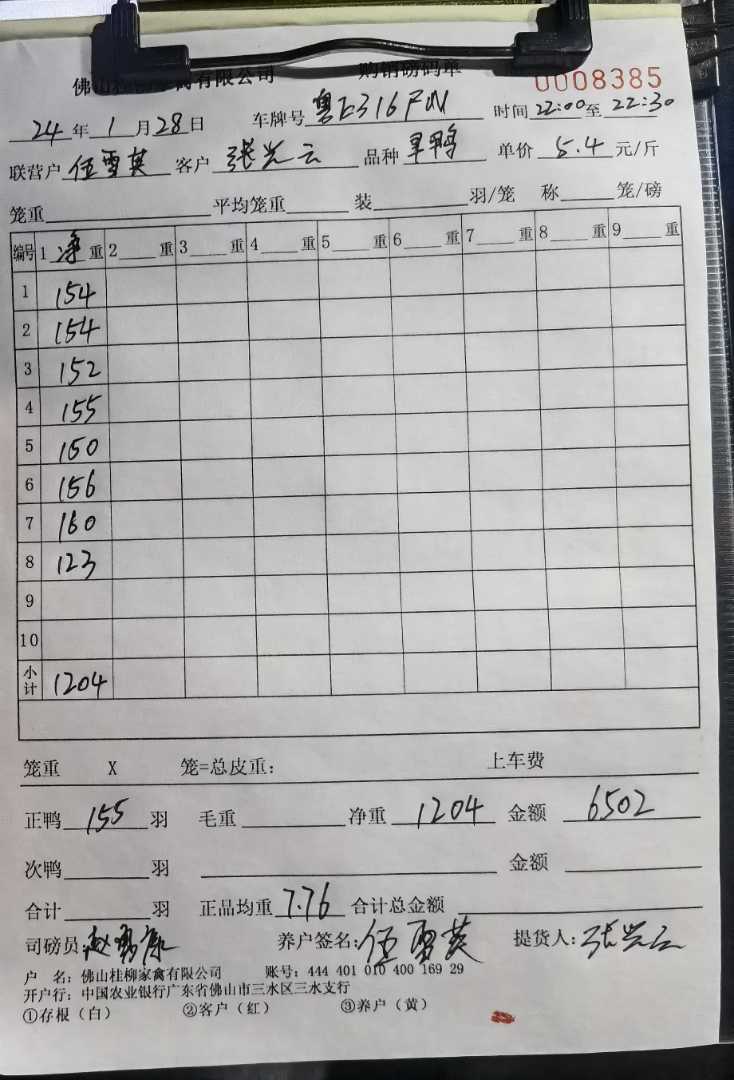 佛山桂柳家禽有限公司 购销磅码单 0008385
24年1月28日 车牌号 时间22:00至22:30
联营户伍雪英 客户张兴云 品种 单价5.4元/斤
笼重 平均笼重 装 羽/笼 称 笼/磅
编号 1净重 2 重 3 重 4 重 5 重 6 重 7 重 8 重 9 重
1 154
2 154
3 152
4 155
5 150
6 156
7 160
8 123
9
10
小计 1204
笼重 X 笼=总皮重: 上车费
正鸭155羽 毛重 净重1204 金额6502
次鸭 羽 金额
合计 羽 正品均重7.76 合计总金额
司磅员: 养户签名:伍雪英 提货人:张兴云
户 名: 佛山桂柳家禽有限公司 账号: 444 401 010 400 169 29
开户行: 中国农业银行广东省佛山市三水区三水支行
①存根(白) ②客户(红) ③养户(黄)